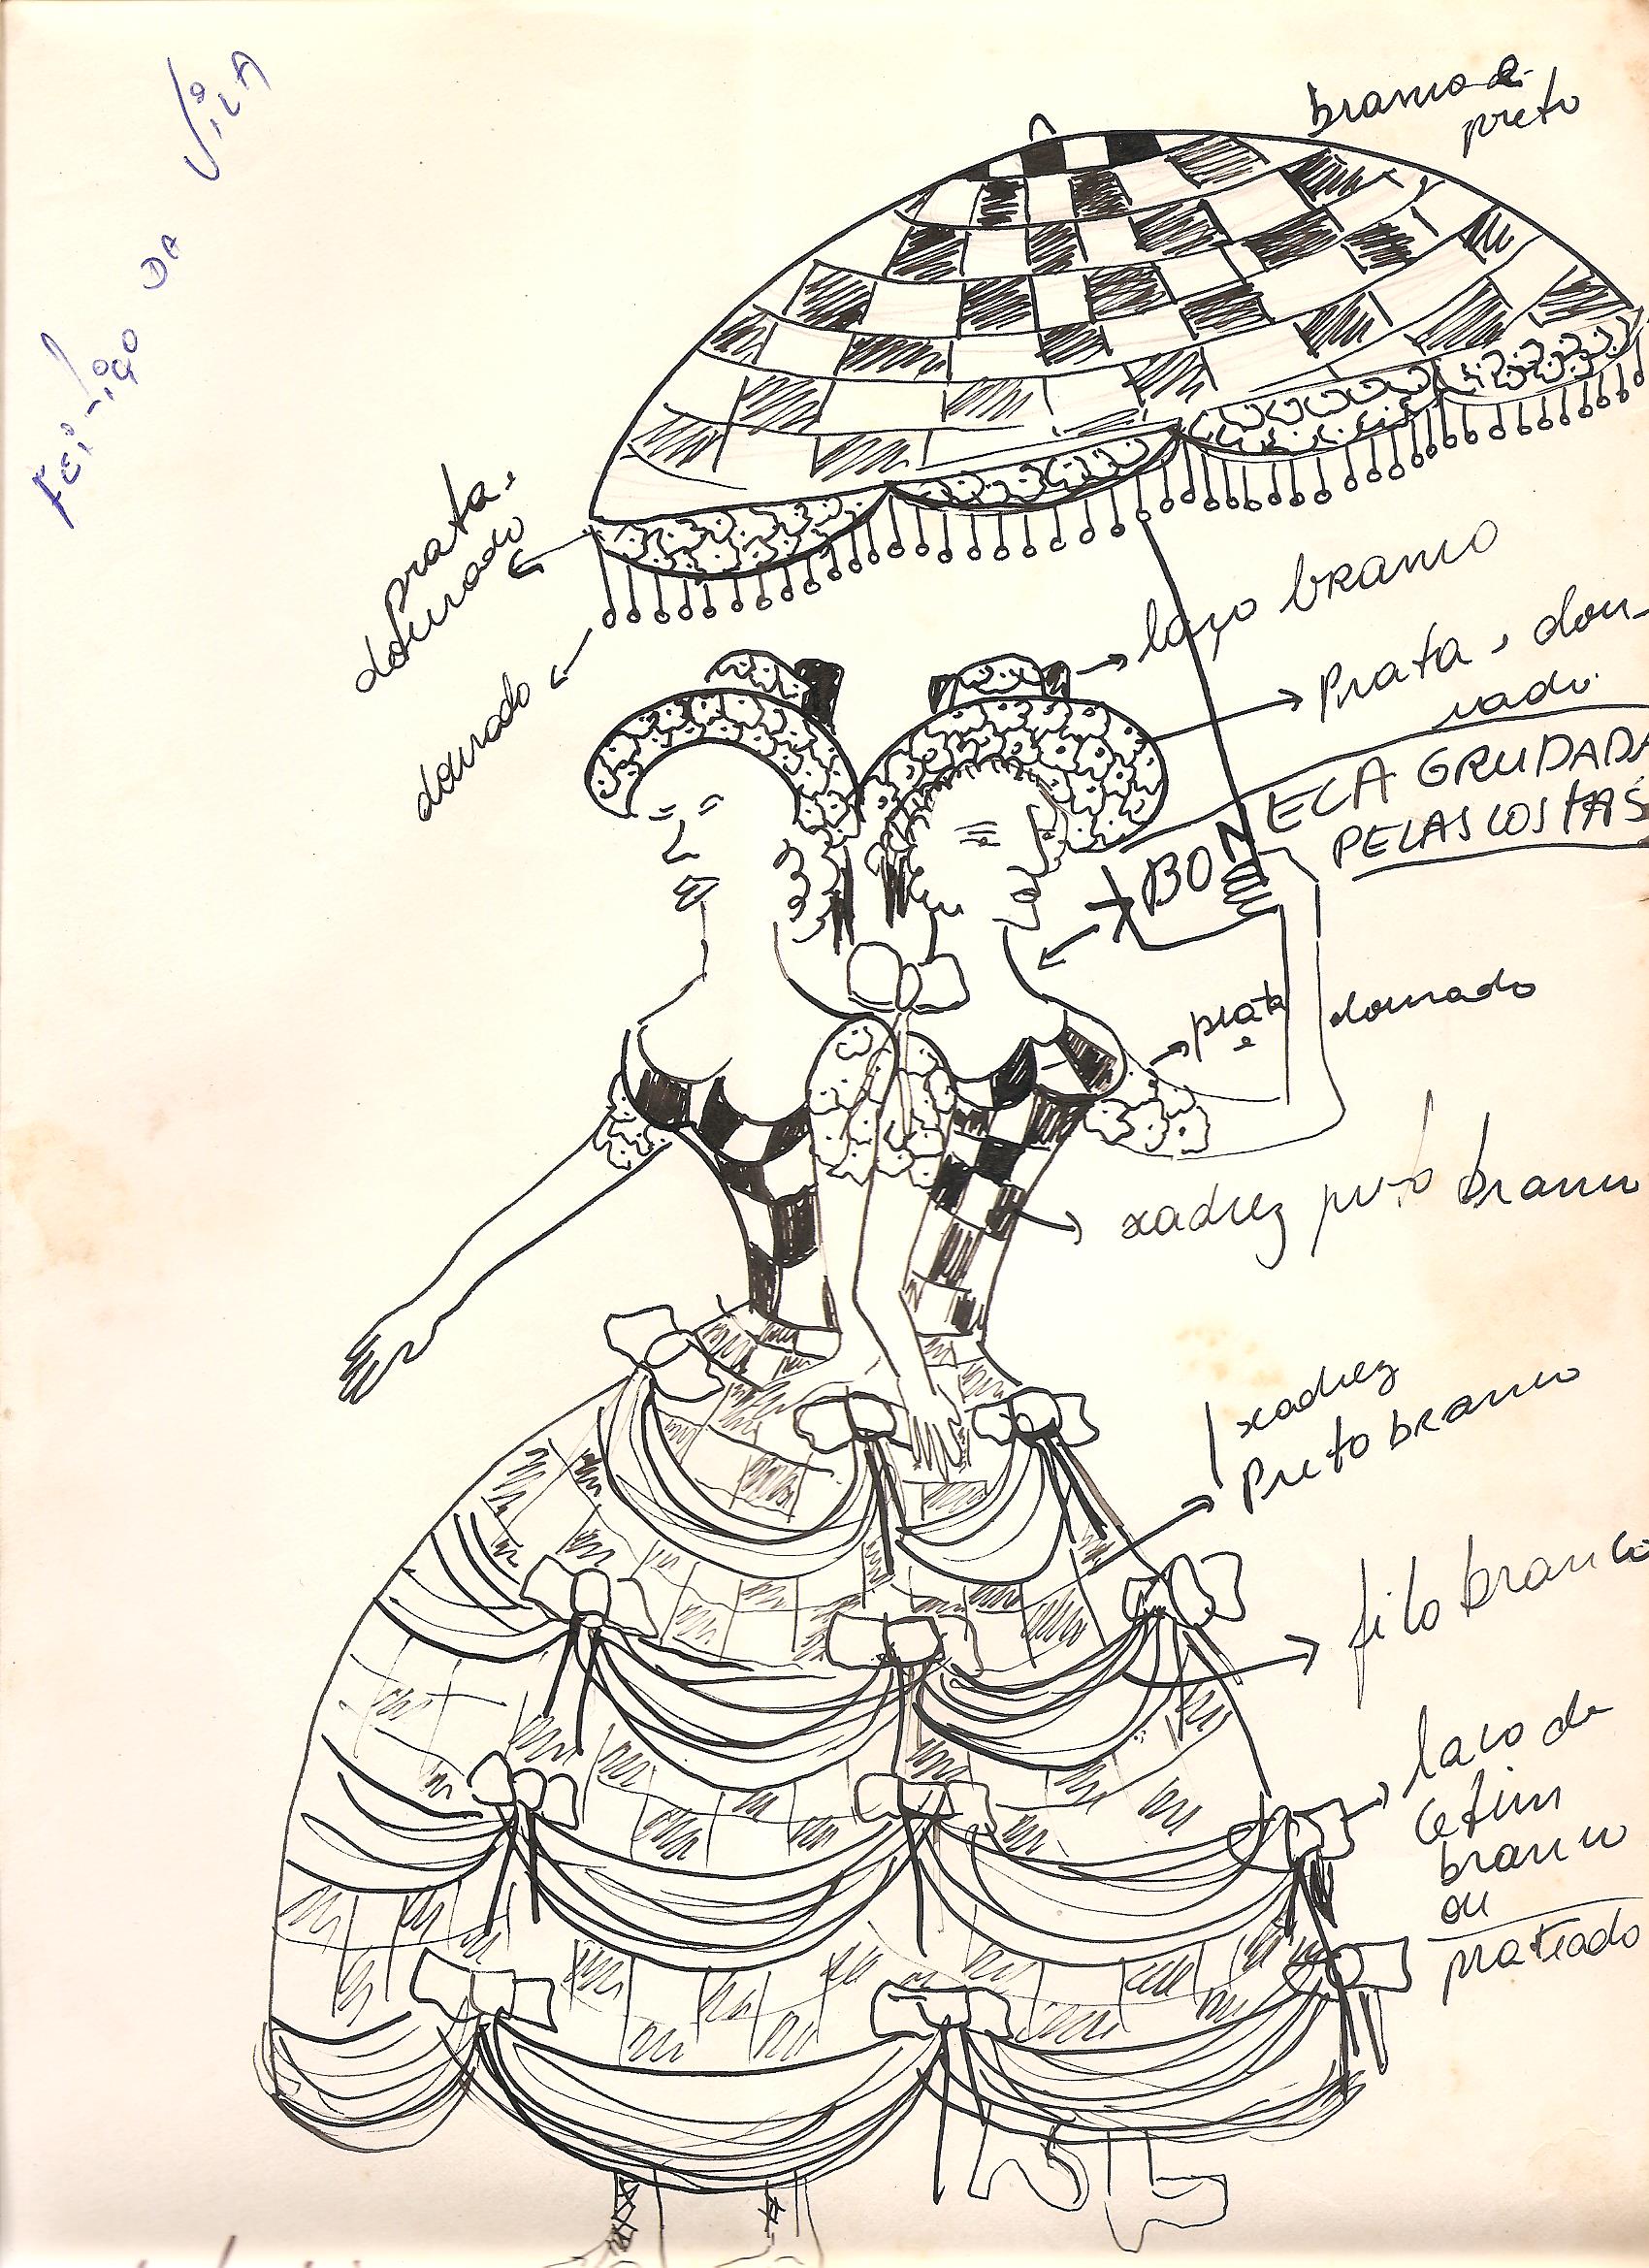 Feitiço DA VILA
branco e
preto
prata.
dourado
dourado
laço branco
Prata, dou-
rado.
BONECA GRUDADA
PELAS COSTAS
prata
e
dourado
xadrez preto branco
xadrez
Preto branco
filo branco
laco de
cetim
branco
ou
prateado